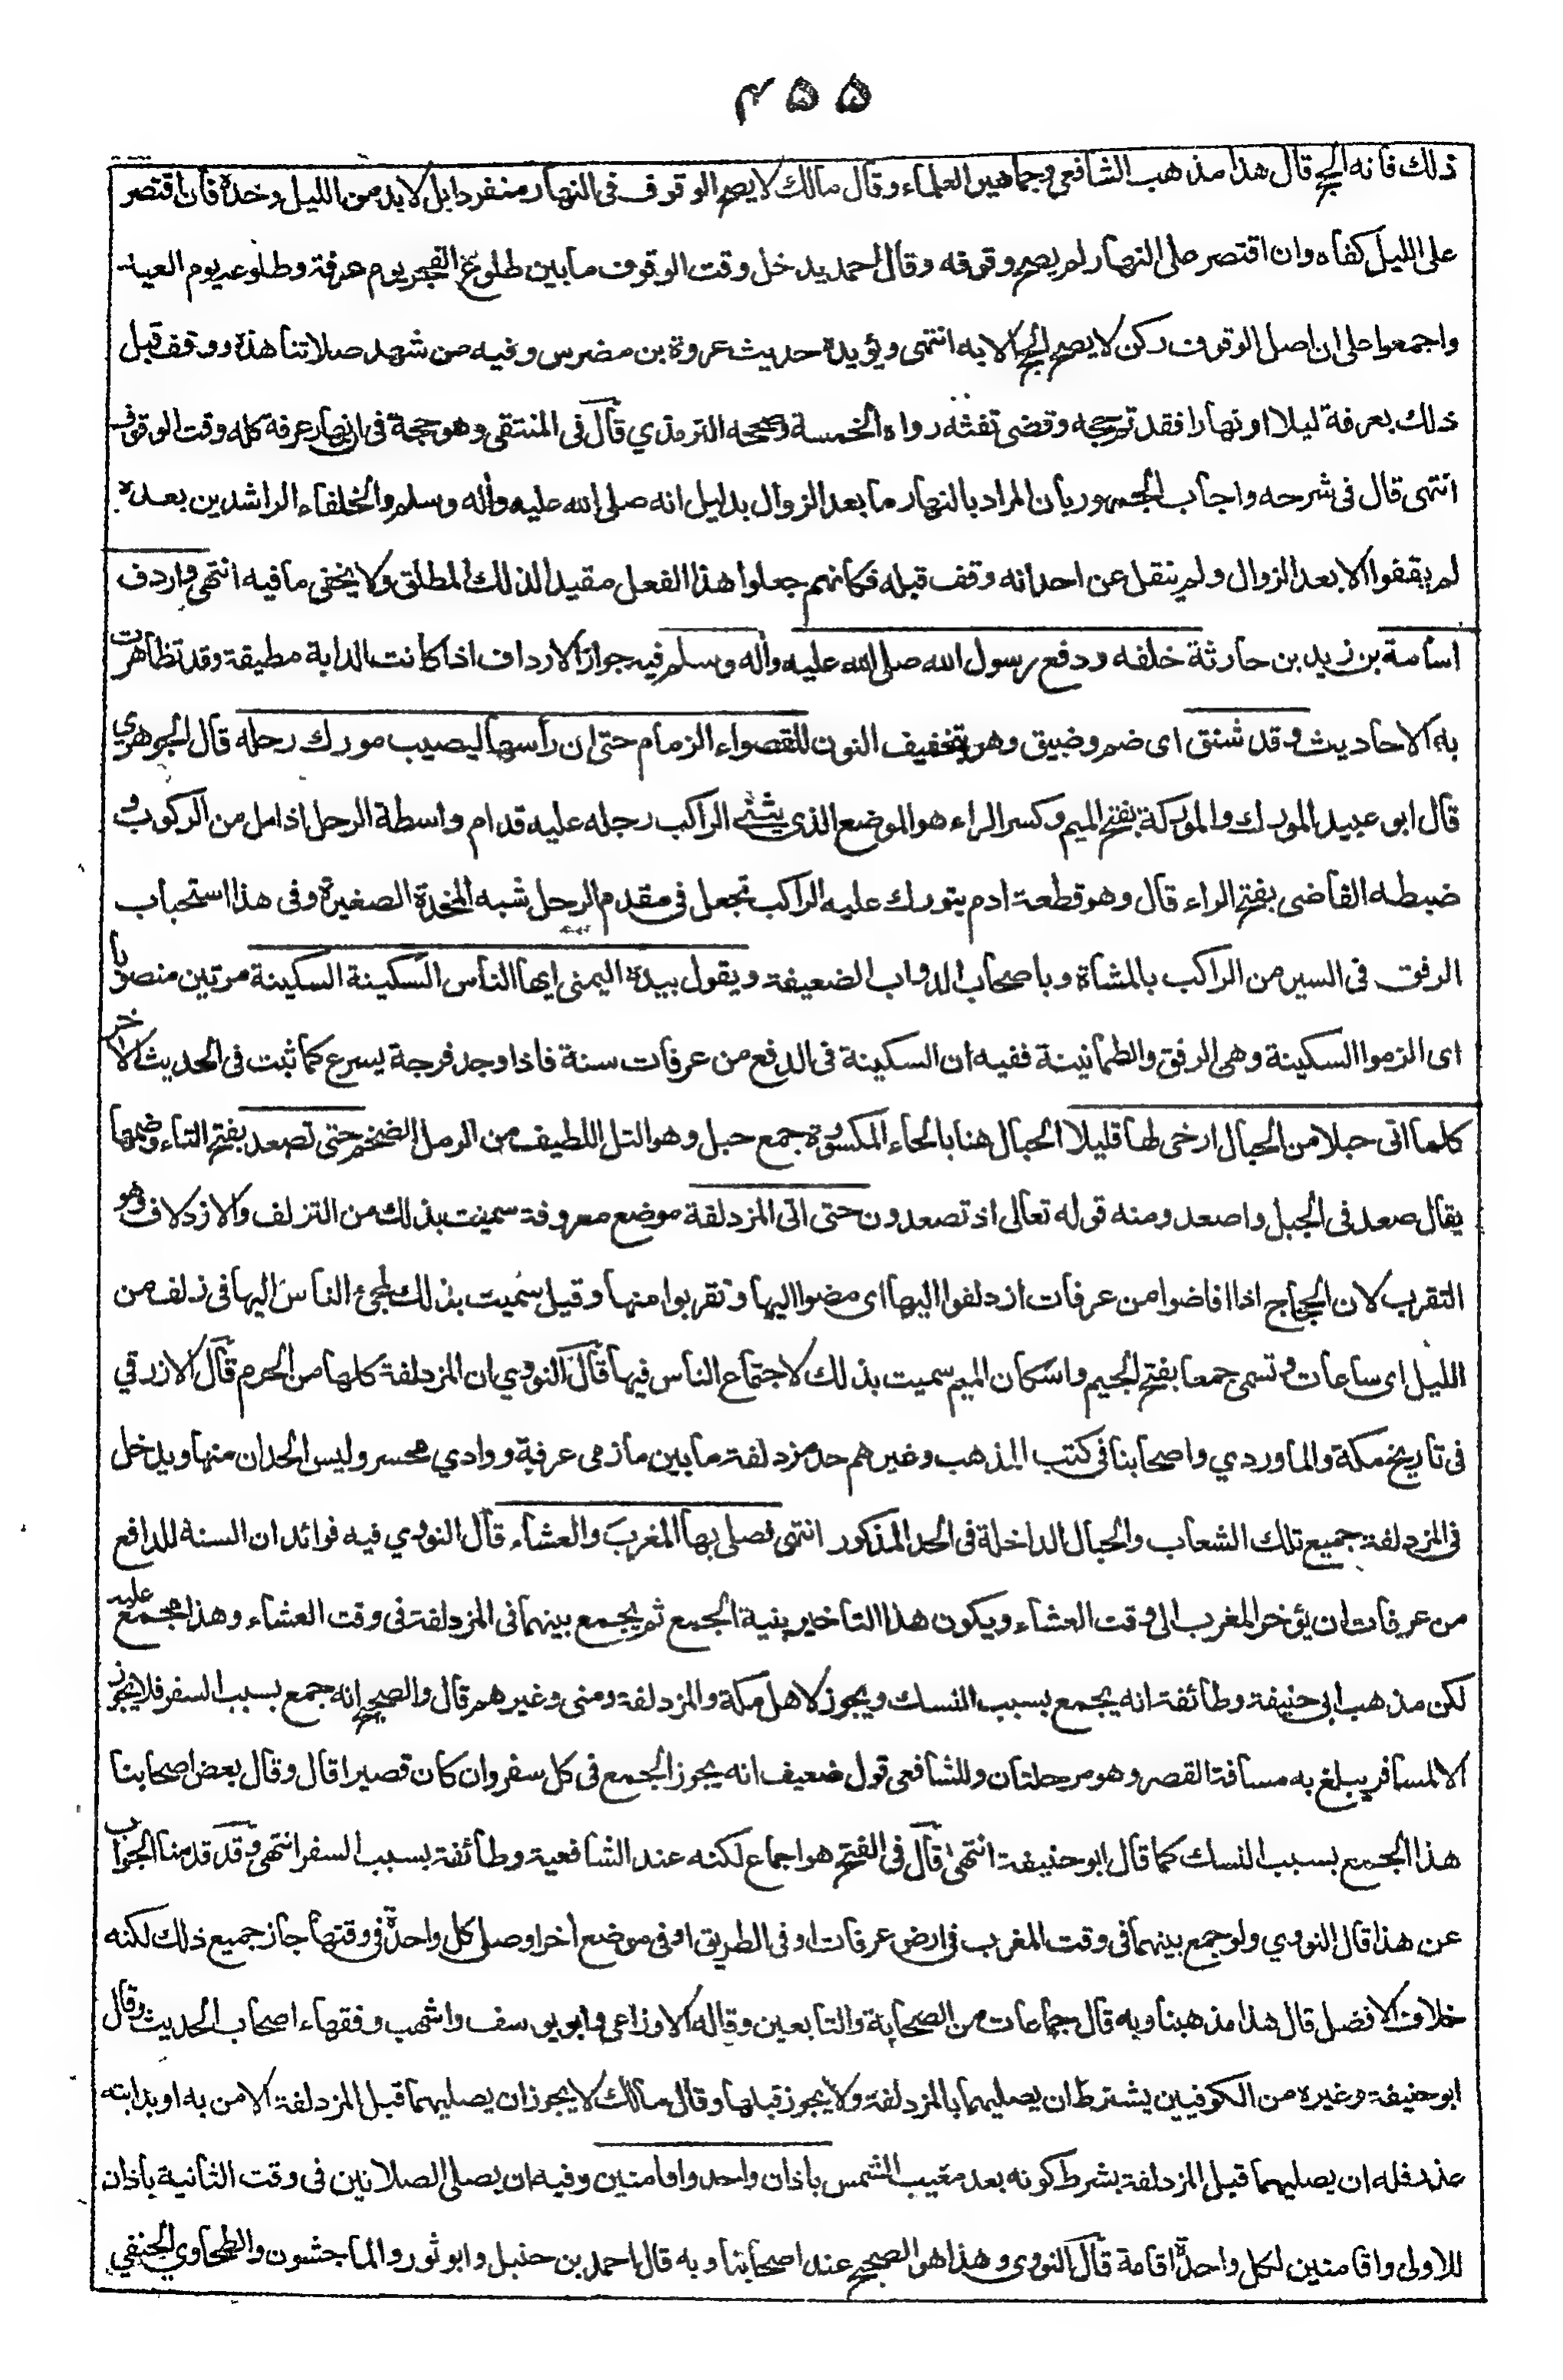 ۴۵۵
ذلك فاته الحج قال هذا مذهب الشافعي وجماهير العلماء وقال مالك لا يصح الوقوف فى النهار منفردا بل لابد من الليل وحده فان اقتصر
على الليل كفاه وان اقتصر على النهار لم يصح وقوفه وقال احمد يدخل وقت الوقوف ما بين طلوع الفجر يوم عرفة وطلوعه يوم العيد
واجمعوا على ان اصل الوقوف ركن لا يصح الحج الا به انتهى ويؤيده حديث عروة بن مضرس وفيه من شهد صلاتنا هذه ووقف قبل
ذلك بعرفة ليلا او نهارا فقد تم حجه وقضى تفثه رواه الخمسة وصححه الترمذي قال فى المنتقى وهو حجة فى ان نهار عرفة كله وقت الوقوف
انتهى قال فى شرحه واجاب الجمهور بان المراد بالنهار ما بعد الزوال بدليل انه صلى الله عليه وأله وسلم والخلفاء الراشدين بعده
لم يقفوا الا بعد الزوال ولم ينقل عن احد انه وقف قبله فكانهم جعلوا هذا الفعل مقيدا لذلك المطلق ولا يخفى ما فيه انتهى واردف
اسامة بن زيد بن حارثة خلفه ودفع رسول الله صلى الله عليه وأله وسلم فيه جواز الارداف اذا كانت الدابة مطيقة وقد تظاهرت
به الاحاديث وقد شنق اى ضم وضيق وهو بتخفيف النون للقصواء الزمام حتى ان رأسها ليصيب مورك رحله قال الجوهري
قال ابو عبيد المورك والموركة بفتح الميم وكسر الراء هو الموضع الذى يثنى الراكب رجله عليه قدام واسطة الرحل اذا مل من الركوب و
ضبطه القاضى بفتح الراء قال وهو قطعة ادم يتورك عليه الراكب تجعل فى مقدم الرحل شبه المخدة الصغيرة وفى هذا استحباب
الرفق فى السير من الراكب بالمشاة وباصحاب الدواب الضعيفة ويقول بيده اليمنى ايها الناس السكينة السكينة مرتين منصوبا
اى الزموا السكينة وهى الرفق والطمانينة ففيه ان السكينة فى الدفع من عرفات سنة فاذا وجد فرجة يسرع كما ثبت فى الحديث الاخر
كلما اتى حبلا من الحبال ارخى لها قليلا الحبال هنا بالحاء المكسورة جمع حبل وهو التل اللطيف من الرمل الضخم حتى تصعد بفتح التاء وضمها
يقال صعد فى الجبل واصعد ومنه قوله تعالى اذ تصعدون حتى اتى المزدلفة موضع معروفة سميت بذلك من التزلف والازدلاف وهو
التقرب لان الحجاج اذا افاضوا من عرفات ازدلفوا اليها اى مضوا اليها وتقربوا منها وقيل سميت بذلك لمجئ الناس اليها فى زلف من
الليل اى ساعات وتسمى جمعا بفتح الجيم واسكان الميم سميت بذلك لاجتماع الناس فيها قال النووي ان المزدلفة كلها من الحرم قال الازرقي
فى تاريخ مكة والماوردي واصحابنا فى كتب المذهب وغيرهم حد مزدلفة ما بين مازمى عرفة ووادي محسر وليس الحدان منها ويدخل
فى المزدلفة جميع تلك الشعاب والحبال الداخلة فى الحد المذكور انتهى فصلى بها المغرب والعشاء قال النووي فيه فوائد ان السنة للدافع
من عرفات ان يؤخر المغرب الى وقت العشاء ويكون هذا التاخير بنية الجمع ثم يجمع بينهما فى المزدلفة فى وقت العشاء وهذا مجمع عليه
لكن مذهب ابى حنيفة وطائفة انه يجمع بسبب النسك ويجوز لاهل مكة والمزدلفة ومنى وغيرهم قال والصحيح انه جمع بسبب السفر فلا يجوز
الا لمسافر يبلغ به مسافة القصر وهو مرحلتان وللشافعى قول ضعيف انه يجوز الجمع فى كل سفر وان كان قصيرا قال وقال بعض اصحابنا
هذا الجمع بسبب النسك كما قال ابو حنيفة انتهى قال فى الفتح هو اجماع لكنه عند الشافعية وطائفة بسبب السفر انتهى وقد قدمنا الجواب
عن هذا قال النووي ولو جمع بينهما فى وقت المغرب فى ارض عرفات او فى الطريق او فى موضع أخر او صلى كل واحدة فى وقتها جاز جميع ذلك لكنه
خلاف الافضل قال هذا مذهبنا وبه قال جماعات من الصحابة والتابعين وقاله الاوزاعى وابو يوسف واشهب وفقهاء اصحاب الحديث وقال
ابو حنيفة وغيره من الكوفيين يشترط ان يصليهما بالمزدلفة ولا يجوز قبلها وقال مالك لا يجوز ان يصليهما قبل المزدلفة الا من به او بدابته
عذر فله ان يصليهما قبل المزدلفة بشرط كونه بعد مغيب الشمس باذان واحد واقامتين وفيه ان يصلى الصلاتين فى وقت الثانية باذان
للاولى واقامتين لكل واحدة اقامة قال النووى وهذا هو الصحيح عند اصحابنا وبه قال احمد بن حنبل وابو ثور والماجشون والطحاوي الحنفي